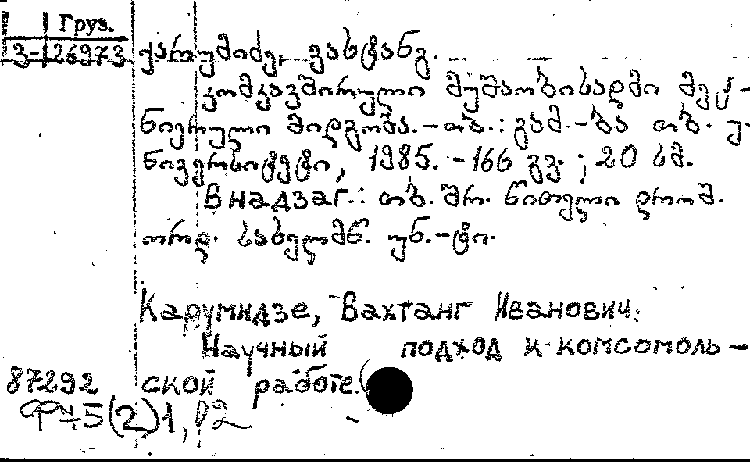 Груз.
3-26973 ქარუმიძე, ვახტანგ.
კომკავშირული მუშაობისადმი მეც-
ნიერული მიდგომა. – თბ.: გამ-ბა თბ. უ-
ნივერსიტეტი, 1985. - 166 გვ. ; 20 სმ.
В надзаг.: თბ. შრ. წითელი დროშ.
ორდ. სახელმწ. უნ.-ტი.
Карумидзе, Вахтанг Иванович.
Научный подход к комсомоль-
87292 ской работе.
975(2)1, р2